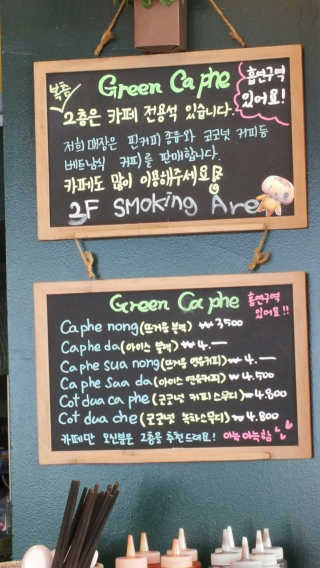 복층 Green Ca phe 흡연구역 있어요!
2층은 카페 전용석 있습니다.
저희 매장은 핀커피 종류와 코코넛 커피 등
베트남식 커피를 판매합니다.
카페도 많이 이용해주세요!
2F SMoking Area
Green Ca phe 흡연구역 있어요!!
Ca phe nong (뜨거운 블랙) ₩3500
Ca phe da (아이스 블랙) ₩4.—
Ca phe sua nong (뜨거운 연유커피) ₩4.—
Ca phe Sua da (아이스 연유커피) ₩4,500
Cot dua ca phe (코코넛 커피 스무디) ₩4.800
Cot dua che (코코넛 녹차스무디) ₩4.800
카페만 오신분은 2층을 추천드려요! 아늑 아늑함